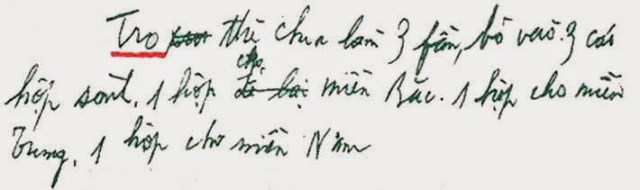 Tro thì chia làm 3 fần, bỏ vào 3 cái
hộp sành. 1 hộp cho miền Bắc. 1 hộp cho miền
Trung. 1 hộp cho miền Nam